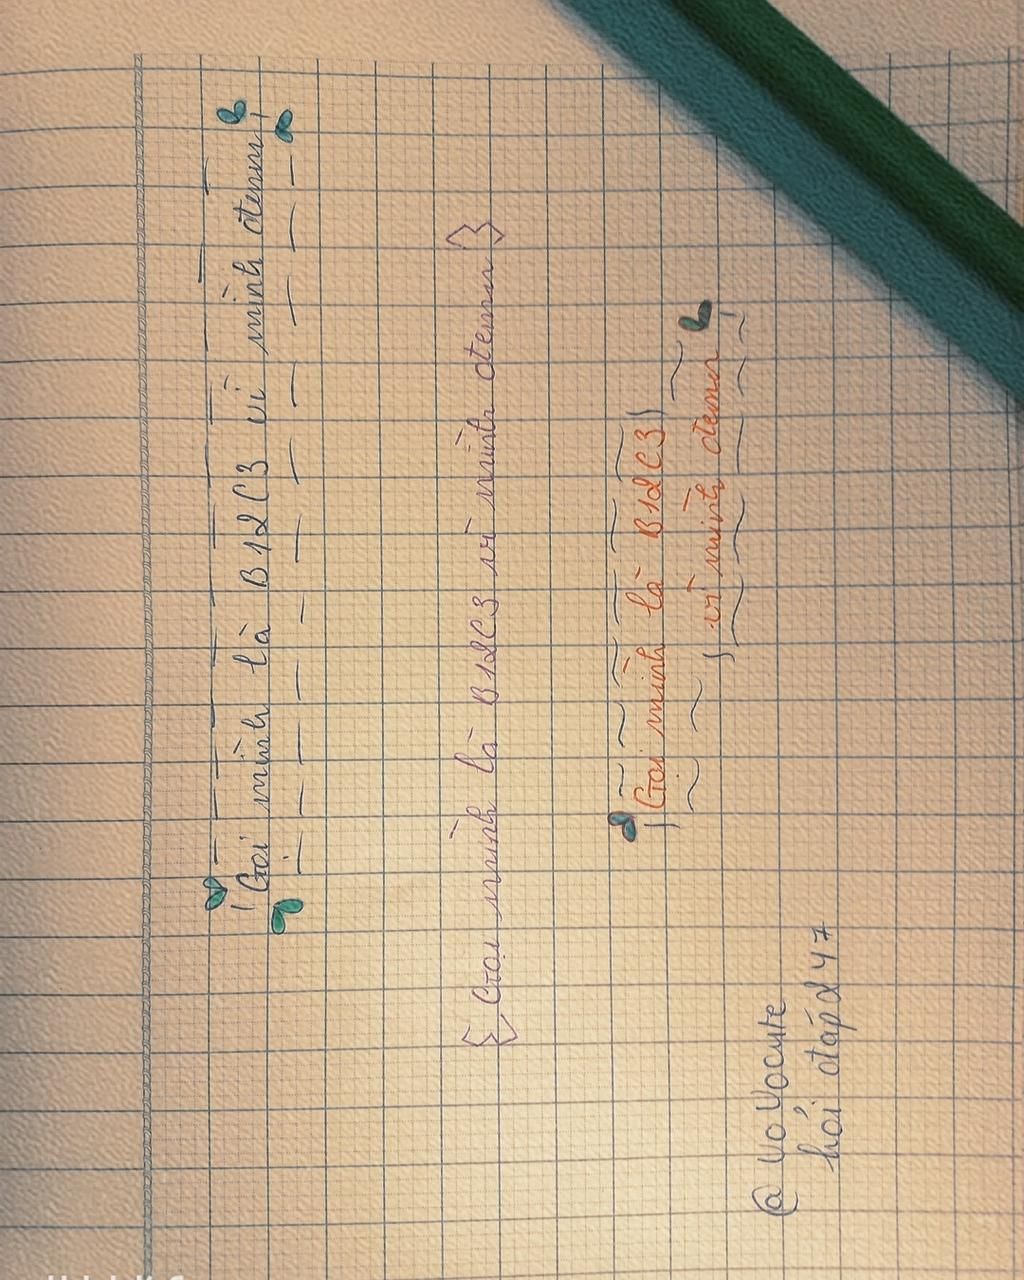 Gọi mình là B12C3 vì mình đennn
Gọi mình là B12C3 vì mình đennn
Gọi mình là B12C3
vì mình đennn
@ vovocute
hỏi đáp 247